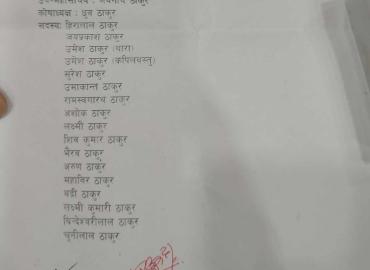 उप-महासचिव : जयनाथ ठाकुर
कोषाध्यक्ष : ध्रुव ठाकुर
सदस्यः हिरालाल ठाकुर
जयप्रकाश ठाकुर
उमेश ठाकुर (धारा)
उमेश ठाकुर (कपिलवस्तु)
सुरेश ठाकुर
उमाकान्त ठाकुर
रामस्वगारथ ठाकुर
अशोक ठाकुर
लक्ष्मी ठाकुर
शिव कुमार ठाकुर
भैरव ठाकुर
अरुण ठाकुर
महाविर ठाकुर
बद्री ठाकुर
लक्ष्मी कुमारी ठाकुर
विन्देश्वरीलाल ठाकुर
चुनीलाल ठाकुर